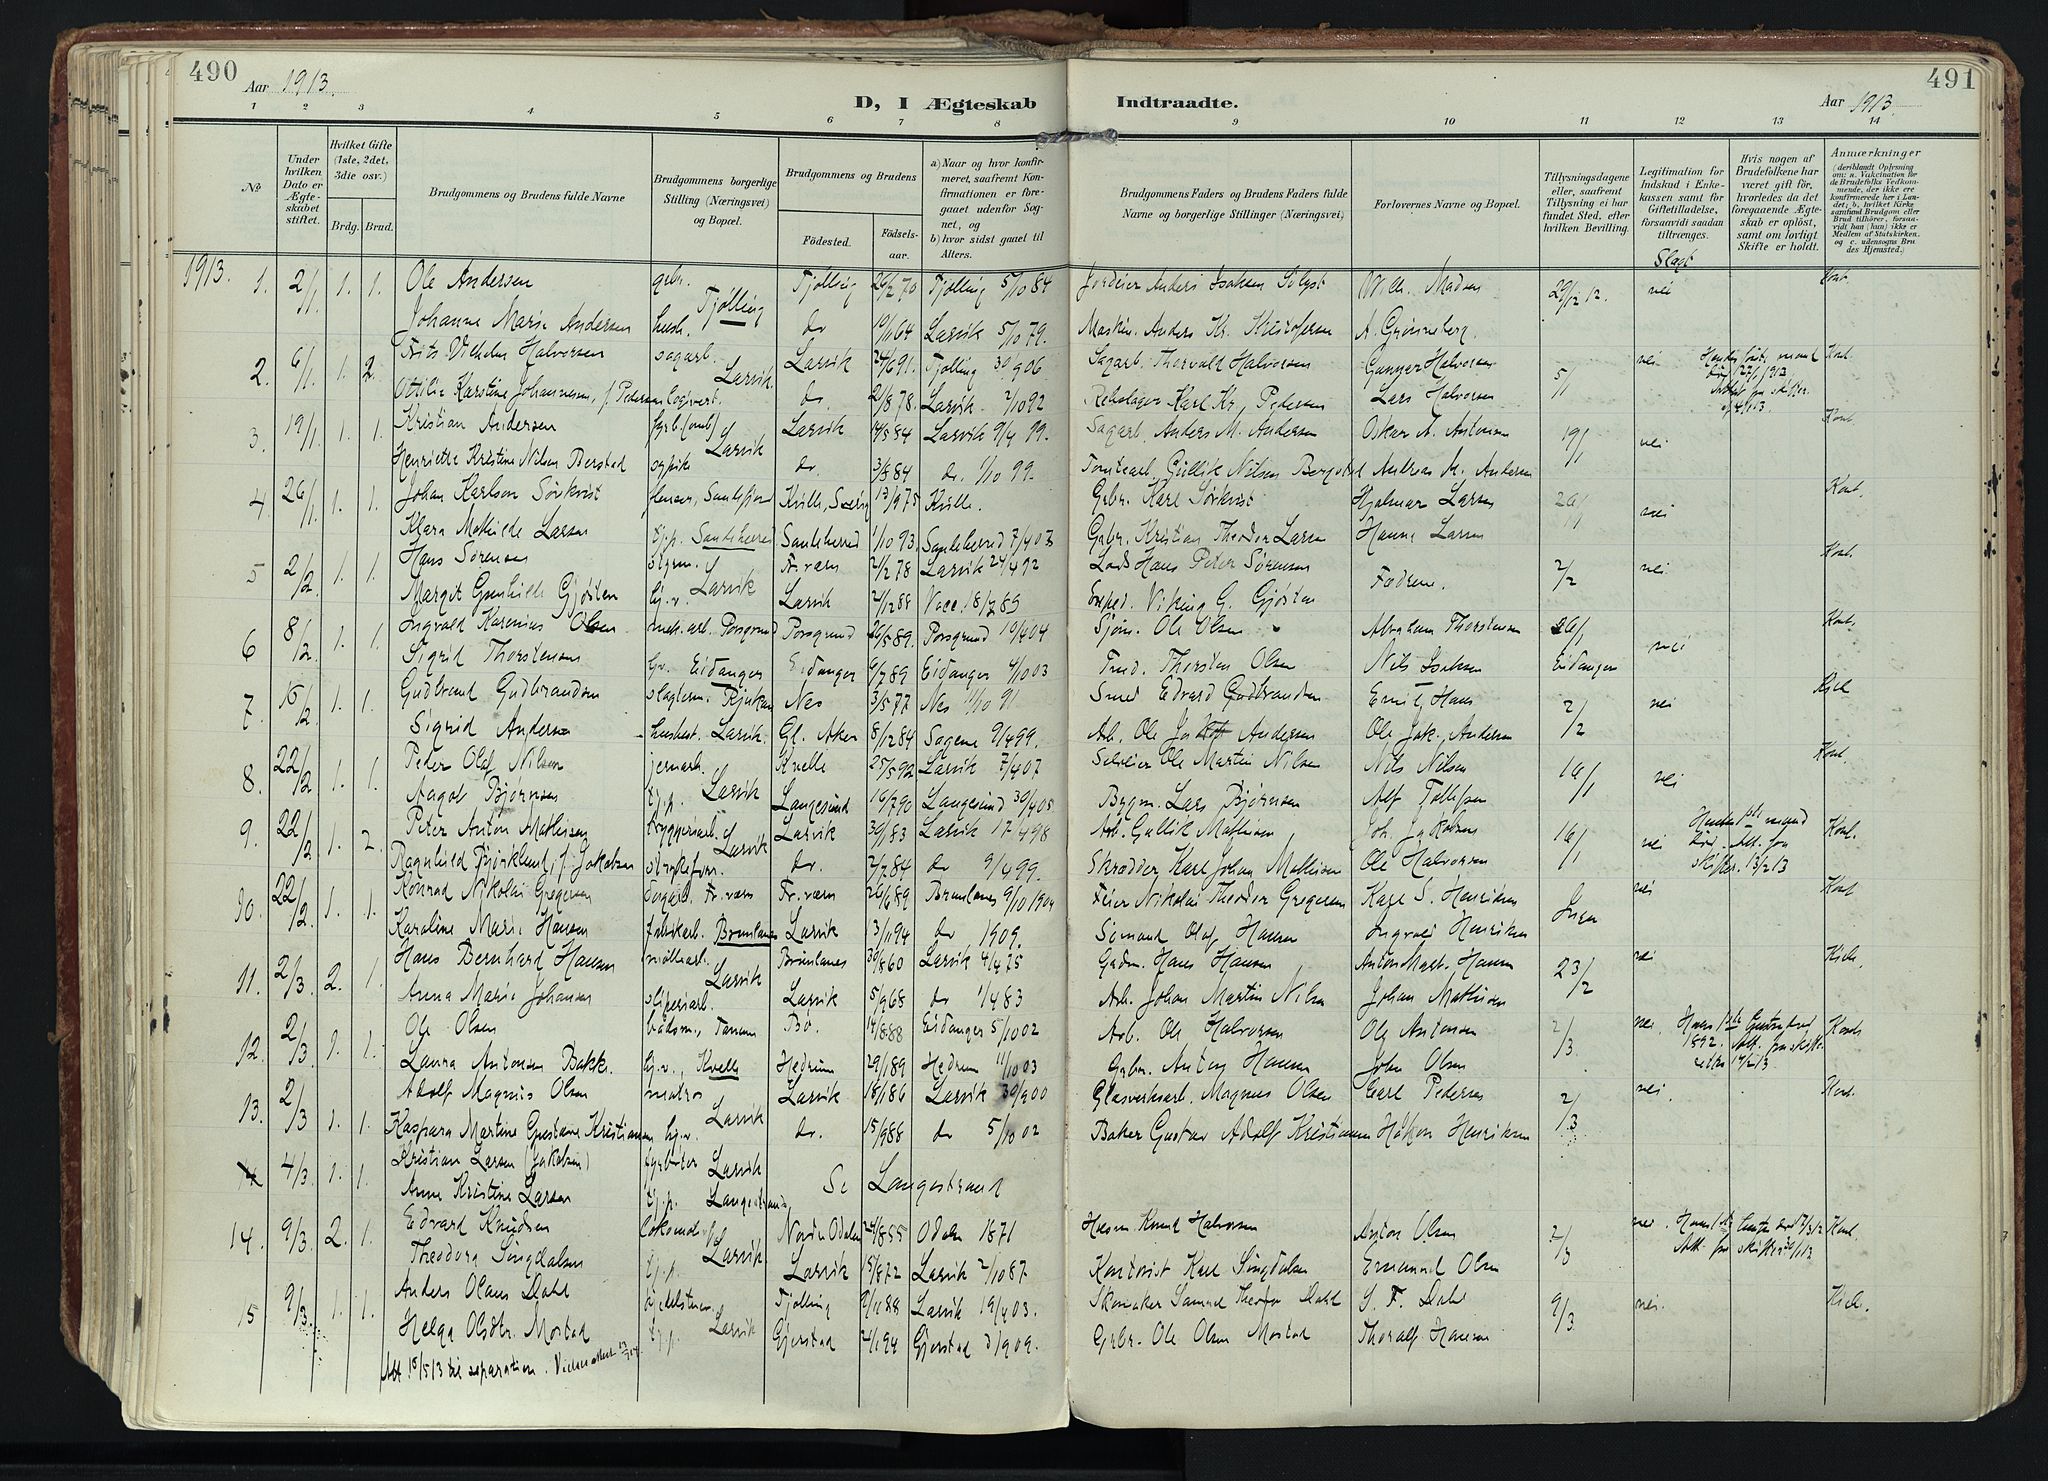 490
Aar 1913.
D, I Ægteskab Indtraadte.
Aar 1913.
491
1 2 3 4 5 6 7 8 9 10 11 12 13 14
№
Under hvilken Dato er Ægteskabet stiftet.
Hvilket Gifte (1ste, 2det, 3die osv.)
Brdg. Brud.
Brudgommens og Brudens fulde Navne
Brudgommens borgerlige Stilling (Næringsvei) og Bopæl.
Brudgommens og Brudens
Fødested.
Fødselsaar.
a) Naar og hvor konfirmeret, saafremt Konfirmationen er foregaaet udenfor Sognet, og
b) hvor sidst gaaet til Alters.
Brudgommens Faders og Brudens Faders fulde Navne og borgerlige Stillinger (Næringsvei)
Forlovernes Navne og Bopæl.
Tillysningsdagene eller, saafremt Tillysning ei har fundet Sted, efter hvilken Bevilling.
Legitimation for Indskud i Enkekassen samt for Giftetilladelse, forsaavidt saadan tiltrænges.
Hvis nogen af Brudefolkene har været gift før, hvorledes da det foregaaende Ægteskab er opløst, samt om lovligt Skifte er holdt.
Anmærkninger
(deriblandt Oplysning om: a. Vakcination for de Brudefolks Vedkommende, der ikke ere konfirmerede her i Landet; b. hvilket Kirkesamfund Brudgom eller Brud tilhører, forsaavidt han (hun) ikke er Medlem af Statskirken, og c. udensogns Brudes Hjemsted.)
Slægt
1913.
1. 2/1. 1. 1. Ole Andersen grbr. Tjølling Tjølling 26/2 70 Tjølling 5/10 84 Jordeier Anders Isaksen Sølyst Wilh. Madsen 29/12 12. nei Kont.
Johanne Marie Andersen hush. do 19/1 64 Larvik 5/10 79. Maskin. Anders Kr. Kristofersen A. Grønneberg.
2. 6/1. 1. 2. Frits Vilhelm Halvorsen sagarb. Larvik Larvik 24/6 91. Tjølling 30/9 06 Sagarb. Thorvald Halvorsen Gunnar Halvorsen 5/1 nei Kont.
Ottilie Karstine Johannesen, f. Pedersen logivert. do. 21/8 78. Larvik 2/10 92 Rebslager Karl Kr. Pedersen Lars Halvorsen
3. 19/1. 1. 1. Kristian Andersen fyrb. (omb) Larvik Larvik 14/5 84 Larvik 9/4 99. Sagarb. Anders M. Andersen Oskar A. Antonsen 19/1 nei Kont.
Henriette Kristine Nilsen Berstad sypike do. 3/8 84 do. 1/10 99. Tomtearb. Gullik Nilsen Andreas M. Andersen
4 26/1. 1. 1. Johan Karlson Sörkvist Sandefjord Kville, Sverig 13/9 75 Kville. Grbr. Karl Sörkvist Hjalmar Larsen 26/1 nei Kont.
Klara Mathilde Larsen tj.p. Sandeherred Sandeherred 1/10 93. Sandeherred 7/4 07 Grbr. Kristian Theodor Larsen Hanna Larsen
5 2/2. 1. 1. Hans Sørensen styrm. Larvik Fr.værn 21/2 78 Larvik 24/4 92 Lods Hans Peter Sørensen Fædrene. 2/2 nei Kont.
Margit Gunhilde Gjösten hj.v. Larvik 21/12 88 Vacc. 18/7 89 Exped. Viking G. Gjösten
6 8/2. 1. 1. Ingvald Karenius Olsen mek.arb. Porsgrund Porsgrund 26/5 89. Porsgrund 19/4 04 Sjøm. Ole Olsen Abraham Thorstensen 26/1 nei Kont.
Sigrid Thorstensen hv. Eidanger Eidanger 6/7 89 Eidanger 4/10 03 Thorsten Olsen Nils Isaksen Eidanger
7. 15/2. 1. 1. Gudbrand Gudbrandsen slagterm. Rjukan Nes 3/5 77 Nes 1/10 91 Smed Edvard Gudbrandsen Emil Haus 2/2 nei Kirk.
Sigrid Andersen husbest. Larvik. Gl. Aker 8/12 84 Sagene 9/4 99. Arb. Ole Jakob Andersen Ole Jak. Andersen
8. 22/2 1. 1. Peder Olaf Nilsen jernarb. Larvik Kvelle 25/5 92 Larvik 7/4 07 Selveier Ole Martin Nilsen Nils Nilsen 16/1 nei Kont.
Aagot Bjørnsen tj.p. Langesund 16/7 90 Langesund 30/4 05 Bygm. Lars Bjørnsen Alf Tollefsen
9. 22/2 1. 2. Peter Anton Mathisen bryggeriarb. Larvik Larvik 30/1 83 Larvik 17/4 98 Arb. Gullik Mathisen Joh. Jakobsen 16/1 nei Kont.
Ragnhild Bjørklund, f. Jakobsen do. 2/7 84 do 9/4 99. Skrædder Karl Johan Mathisen Ole Halvorsen
10. 22/2. 1. 1. Konrad Nikolai Gregersen Fr.værn Fr.værn 26/6 89 Brunlanes 9/10 1904 Feier Nikolai Theodor Gregersen Kare S. Henriksen Ingen nei Kont
Karoline Marie Hansen fabrikarb. Brunlanes Larvik 13/11 94 do 1909. Sømand Olaf Hansen Ingvald Henriksen
11. 2/3. 2. 1. Hans Bernhard Hansen møllearb. Larvik Brunlanes 30/8 60 Larvik 4/4 75 Gadm. Hans Hansen Anton Hansen 23/2 nei Kirk.
Anna Marie Johansen sliperiarb. Larvik 5/9 68 do 1/4 83 Arb. Johan Martin Nilsen Johan Mathisen
12. 2/3 1. 1. Ole Olsen baadsm., Tanum Bø. 14/8 88 Eidanger 5/10 02 Arb. Ole Halvorsen Ole Antonsen 2/3 nei. Kont.
Laura Antonsen Bakk. hj.v., Kvelle Hedrum 29/1 89 Hedrum 11/10 03 Grbr. Anton Hansen John Olsen
13. 2/3 1. 1. Adolf Magnus Olsen matros Larvik Larvik 18/1 86 Larvik 30/9 00 Glasverksarb. Magnus Olsen Carl Pedersen 2/3 nei. Kont.
Kaspara Martine Gustava Kristiansen hj.v. do. 15/9 88 do 5/10 02 Baker Gustav Adolf Kristiansen Håkon Henriksen
14 4/3 1. 1. Kristian Larsen (Jakobsen) fyrbøter Larvik Se Langestrand
Anne Kristine Larsen tj.p. Langestrand
14. 9/3 2. 1. Edvard Knudsen Larvik Nordre Odalen 24/8 55 Odalen 1871 Husm. Knud Halvorsen Anton Olsen 2/3 nei. Kont.
Theodora Singdalsen tj.p. Larvik 15/8 72 Larvik 2/10 87 Kontorist Karl Singdalsen Emanuel Olsen
15 9/3. 1. 1. Anders Olaus Dahl Larvik Tjølling 9/11 88 Larvik 19/4 03. Skomaker Samuel Dahl S. F. Dahl 9/3 nei. Kirk.
Helga Olsdtr. Mostad tj.p. Gjerstad 21/1 94 Gjerstad 3/1909. Grbr. Ole Olsen Mostad Thoralf Hansen
Att 18/5 13 til separation.